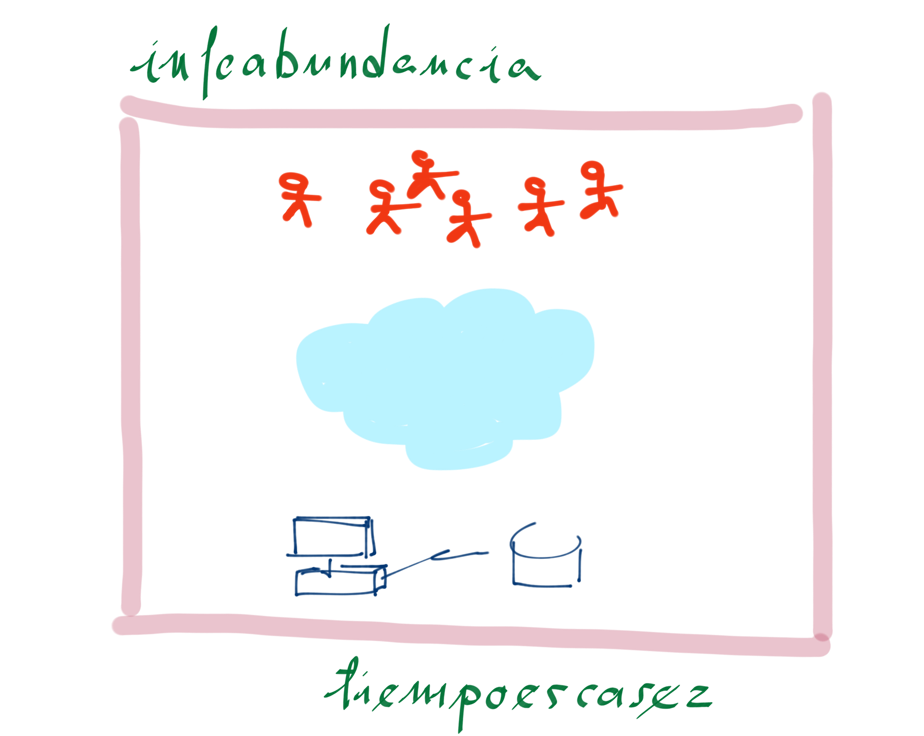 infoabundancia
tiempoescasez